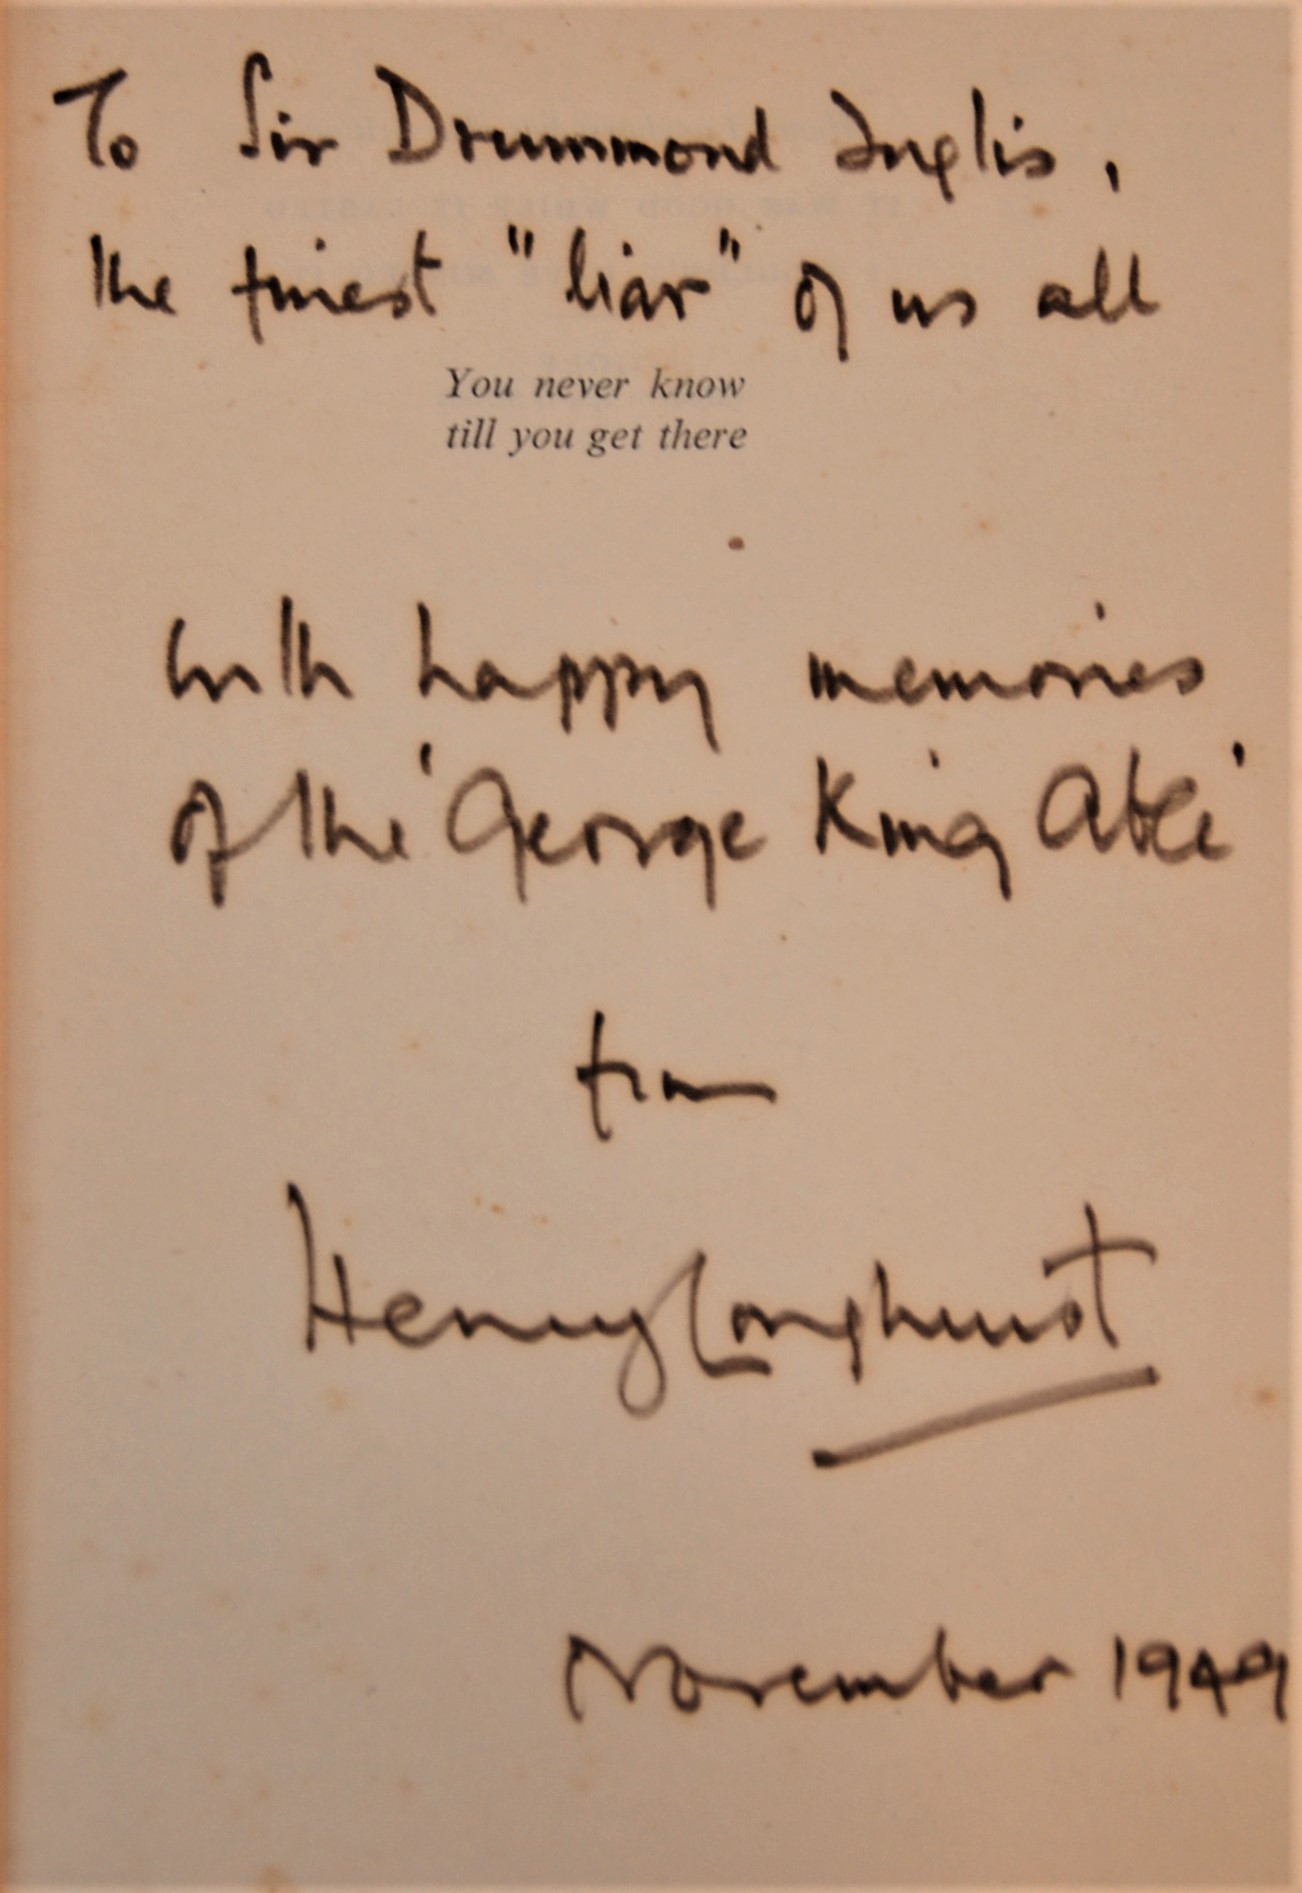 To Sir Drummond Inglis,
the finest "liar" of us all
You never know
till you get there
with happy memories
of the 'George King Able'
from
Henry Longhurst
November 1949